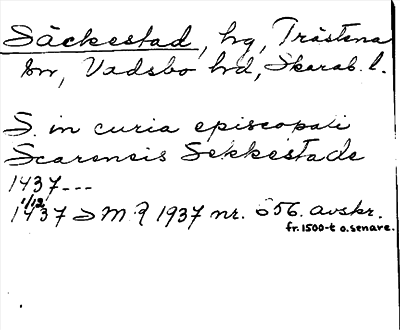 Säckestad, hg, Trästena
sn, Vadsbo hd, Skarab. l.
S. in curia episcopali
Scarensis Sekkestade
1437---
1/12
1437 DMR 1937 nr. 856. avskr.
fr. 1500-t o. senare.